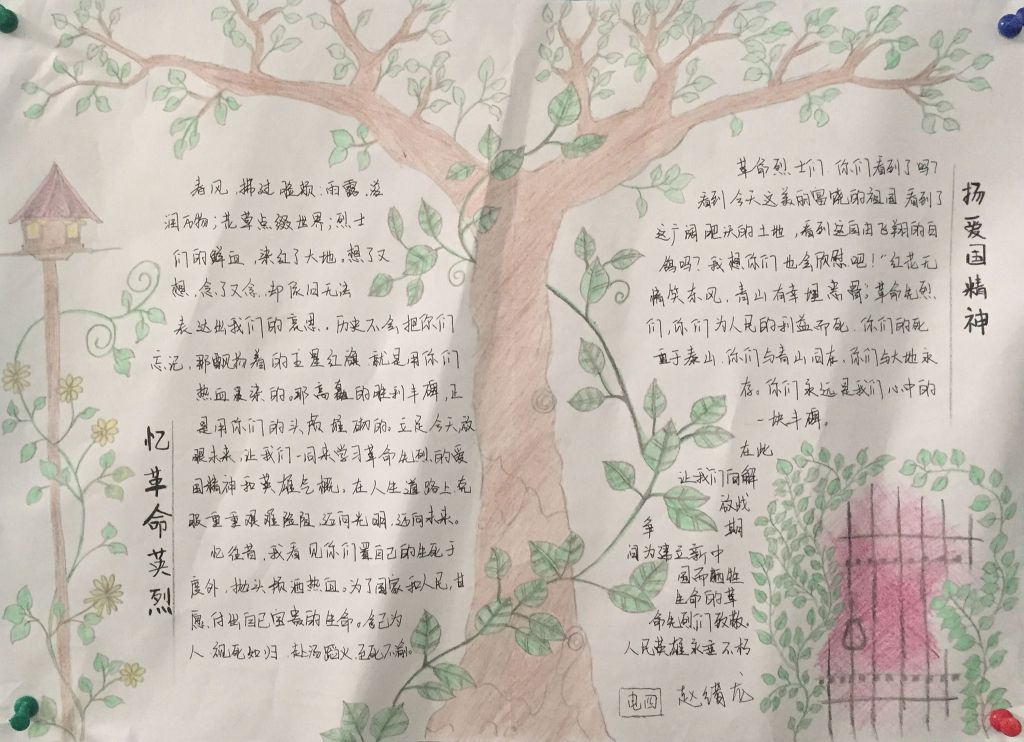 忆革命英烈
春风,拂过脸颊;雨露,滋
润万物;花草点缀世界;烈士
们的鲜血,染红了大地。想了又
想,念了又念,却依旧无法
表达出我们的哀思。历史不会把你们
忘记,那飘扬着的五星红旗就是用你们
热血晨染的。那高矗的胜利丰碑,正
是用你们的头颅堆砌的。立足今天,放
眼未来,让我们一同来学习革命先烈的爱
国精神和英雄气概,在人生道路上克
服重重艰难险阻,迈向光明,迈向未来。
忆往昔,我看见你们置自己的生死于
度外,抛头颅洒热血。为了国家和人民,甘
愿付出自己宝贵的生命。舍己为
人 视死如归 赴汤蹈火,至死不渝。
扬爱国精神
革命烈士们 你们看到了吗?
看到今天这美丽富饶的祖国 看到了
这广阔肥沃的土地,看到这自由飞翔的白
鸽吗?我想你们也会欣慰吧!“红花无
情笑东风,青山有幸埋忠骨;革命先烈
们,你们为人民的利益而死,你们的死
重于泰山,你们与青山同在,你们与大地永
存。你们永远是我们心中的
一块丰碑。
在此
让我们向解
放战
争 期
间为建立新中
国而牺牲
生命的革
命先烈们致敬。
人民英雄永垂不朽
电四 赵绪龙